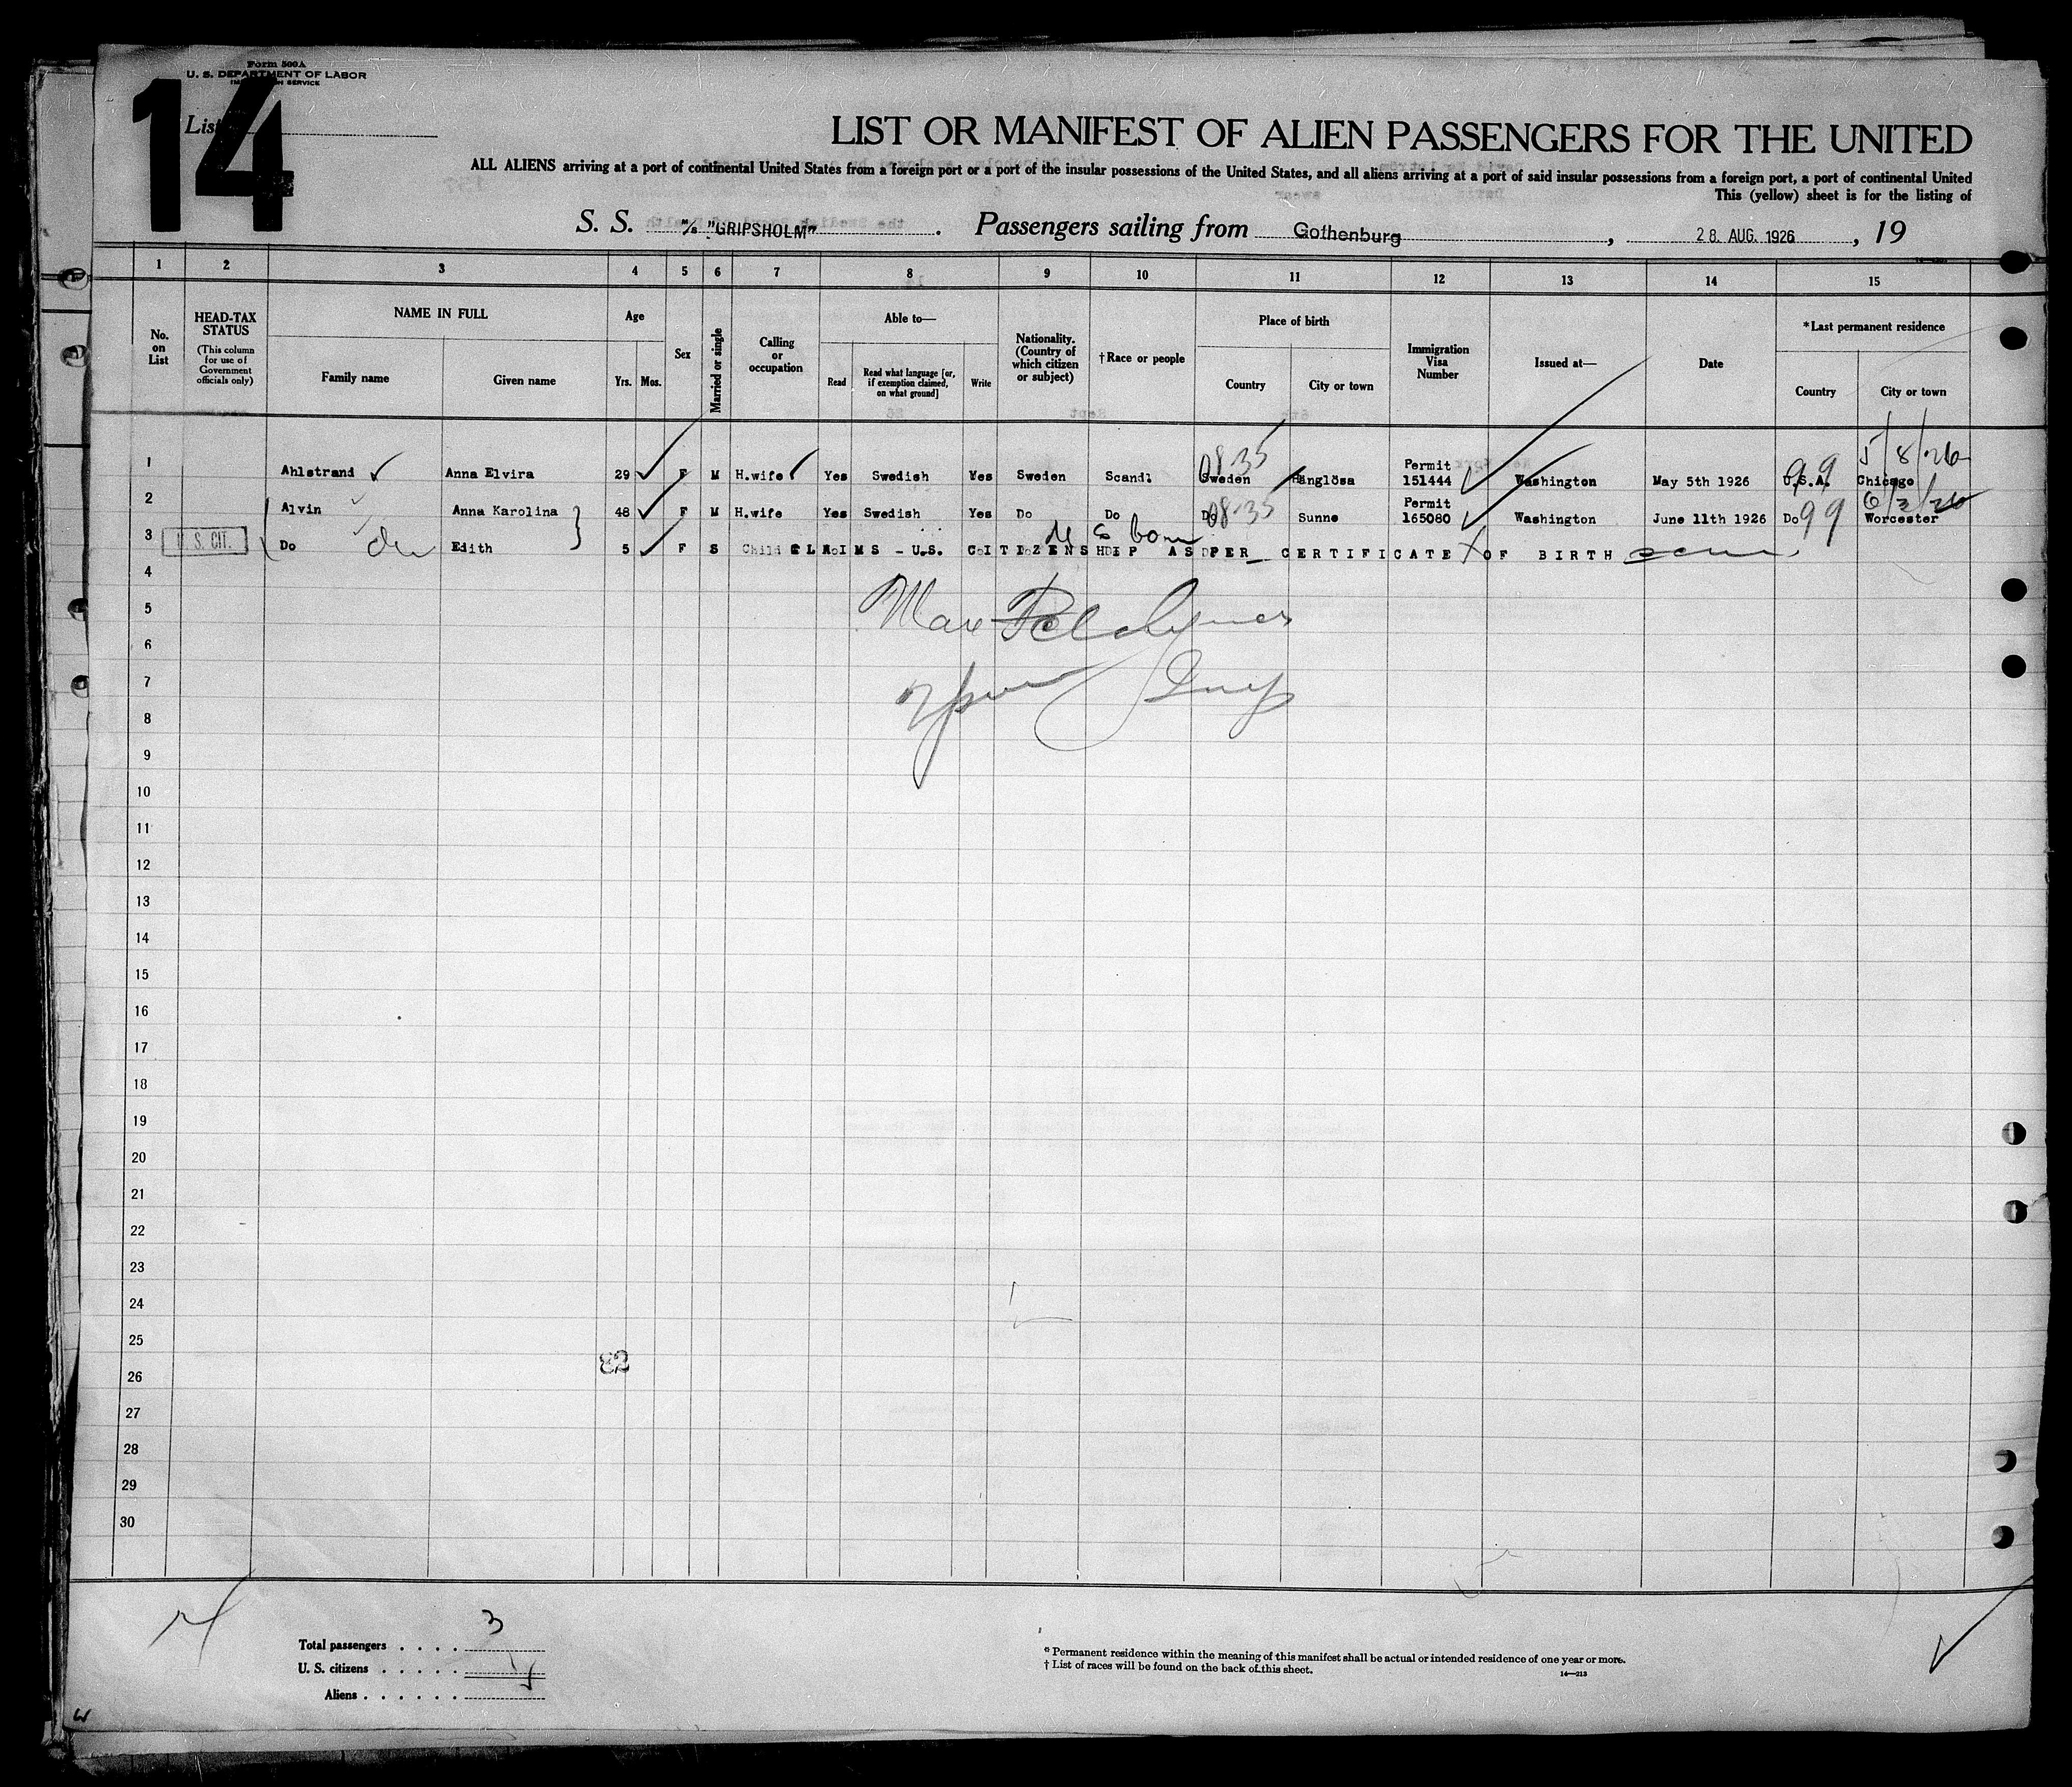 Form 500A
U. S. DEPARTMENT OF LABOR
14
List
LIST OR MANIFEST OF ALIEN PASSENGERS FOR THE UNITED
ALL ALIENS arriving at a port of continental United States from a foreign port or a port of the insular possessions of the United States, and all aliens arriving at a port of said insular possessions from a foreign port, a port of continental United
This (yellow) sheet is for the listing of
S. S. M/s "GRIPSHOLM". Passengers sailing from Gothenburg, 28. AUG. 1926, 19
1 2 3 4 5 6 7 8 9 10 11 12 13 14 15
No. on List
HEAD-TAX STATUS
(This column for use of Government officials only)
NAME IN FULL
Family name
Given name
Age
Yrs. Mos.
Sex
Married or single
Calling or occupation
Able to—
Read
Read what language [or, if exemption claimed, on what ground]
Write
Nationality. (Country of which citizen or subject)
†Race or people
Place of birth
Country
City or town
Immigration Visa Number
Issued at—
Date
*Last permanent residence
Country
City or town
5/8/26
08-35
99
1 Ahlstrand Anna Elvira 29 F M H.wife Yes Swedish Yes Sweden Scand. Sweden Permit 151444 Washington May 5th 1926 U.S.A. Chicago
08-35
99
2 Alvin Anna Karolina 48 F M H.wife Yes Swedish Yes Do Do Do Sunne Permit 165080 Washington June 11th 1926 Do Worcester
U. S. CIT.
U S born
3 Do Edith 5 F S Child CLAIMS - U.S. CITIZENSHIP AS PER CERTIFICATE OF BIRTH
4
5
6
7
8
9
10
11
12
13
14
15
16
17
18
19
20
21
22
23
24
25
26
27
28
29
30
Total passengers . . . . 3
U. S. citizens . . . . .
Aliens . . . . . .
* Permanent residence within the meaning of this manifest shall be actual or intended residence of one year or more.
† List of races will be found on the back of this sheet.
14—213